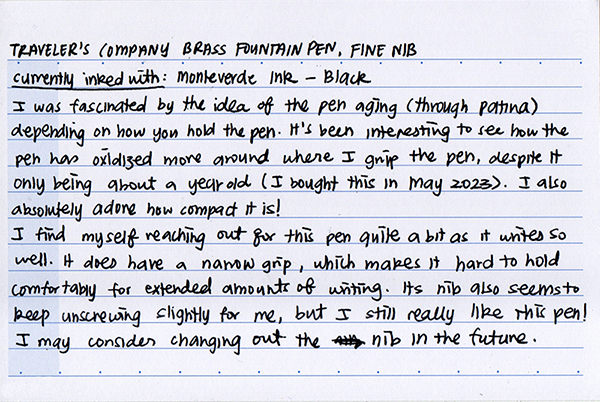 TRAVELER'S COMPANY BRASS FOUNTAIN PEN, FINE NIB
currently inked with: Monteverde Ink – Black
I was fascinated by the idea of the pen aging (through patina)
depending on how you hold the pen. It's been interesting to see how the
pen has oxidized more around where I grip the pen, despite it
only being about a year old (I bought this in May 2023). I also
absolutely adore how compact it is!
I find myself reaching out for this pen quite a bit as it writes so
well. It does have a narrow grip, which makes it hard to hold
comfortably for extended amounts of writing. Its nib also seems to
keep unscrewing slightly for me, but I still really like this pen!
I may consider changing out the nib in the future.